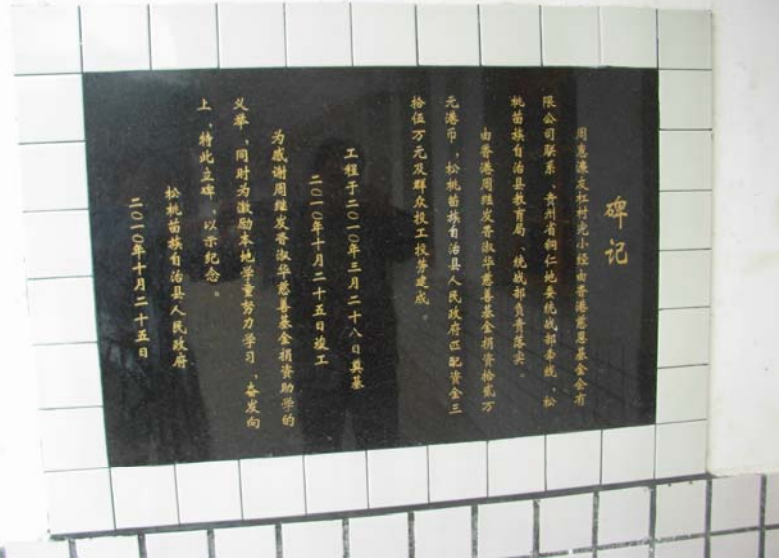 碑记
周惠濂友杠村完小经由香港慈恩基金会有
限公司联系、贵州省铜仁地委统战部牵线、松
桃苗族自治县教育局、统战部负责落实。
由香港周继发香淑华慈善基金捐资拾贰万
元港币,松桃苗族自治县人民政府匹配资金三
拾伍万元及群众投工投劳建成。
工程于二〇一〇年三月二十八日奠基
二〇一〇年十月二十五日竣工
为感谢周继发香淑华慈善基金捐资助学的
义举,同时为激励本地学童努力学习、奋发向
上,特此立碑,以示纪念。
松桃苗族自治县人民政府
二〇一〇年十月二十五日